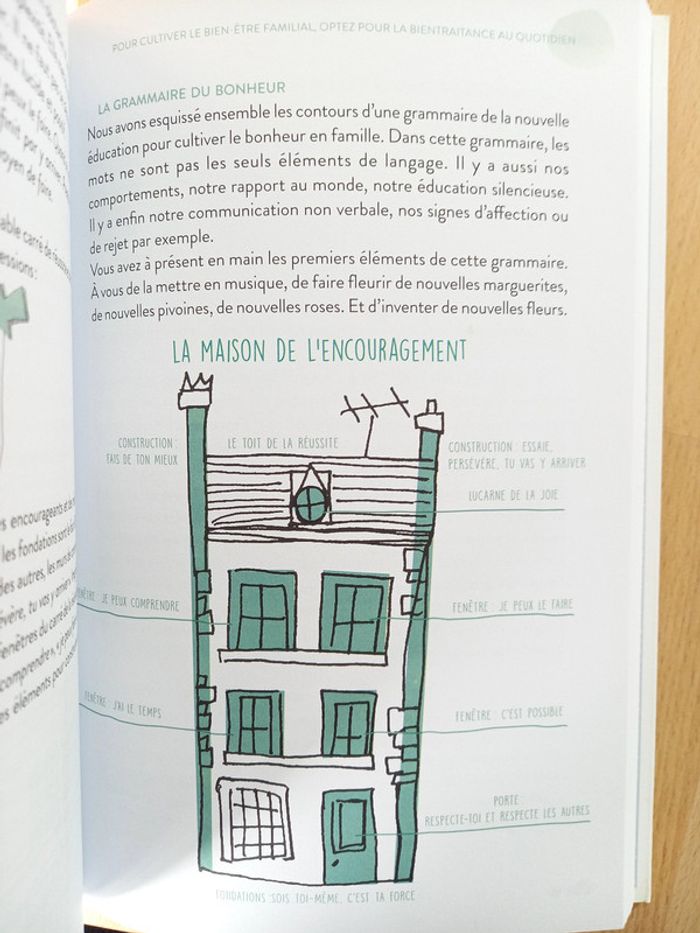 POUR CULTIVER LE BIEN-ÊTRE FAMILIAL, OPTEZ POUR LA BIENTRAITANCE AU QUOTIDIEN
LA GRAMMAIRE DU BONHEUR
Nous avons esquissé ensemble les contours d'une grammaire de la nouvelle
éducation pour cultiver le bonheur en famille. Dans cette grammaire, les
mots ne sont pas les seuls éléments de langage. Il y a aussi nos
comportements, notre rapport au monde, notre éducation silencieuse.
Il y a enfin notre communication non verbale, nos signes d'affection ou
de rejet par exemple.
Vous avez à présent en main les premiers éléments de cette grammaire.
À vous de la mettre en musique, de faire fleurir de nouvelles marguerites,
de nouvelles pivoines, de nouvelles roses. Et d'inventer de nouvelles fleurs.
LA MAISON DE L'ENCOURAGEMENT
CONSTRUCTION :
FAIS DE TON MIEUX
LE TOIT DE LA RÉUSSITE
CONSTRUCTION : ESSAIE,
PERSÉVÈRE, TU VAS Y ARRIVER
LUCARNE DE LA JOIE
FENÊTRE : JE PEUX COMPRENDRE
FENÊTRE : JE PEUX LE FAIRE
FENÊTRE : J'AI LE TEMPS
FENÊTRE : C'EST POSSIBLE
PORTE :
RESPECTE-TOI ET RESPECTE LES AUTRES
FONDATIONS : SOIS TOI-MÊME, C'EST TA FORCE